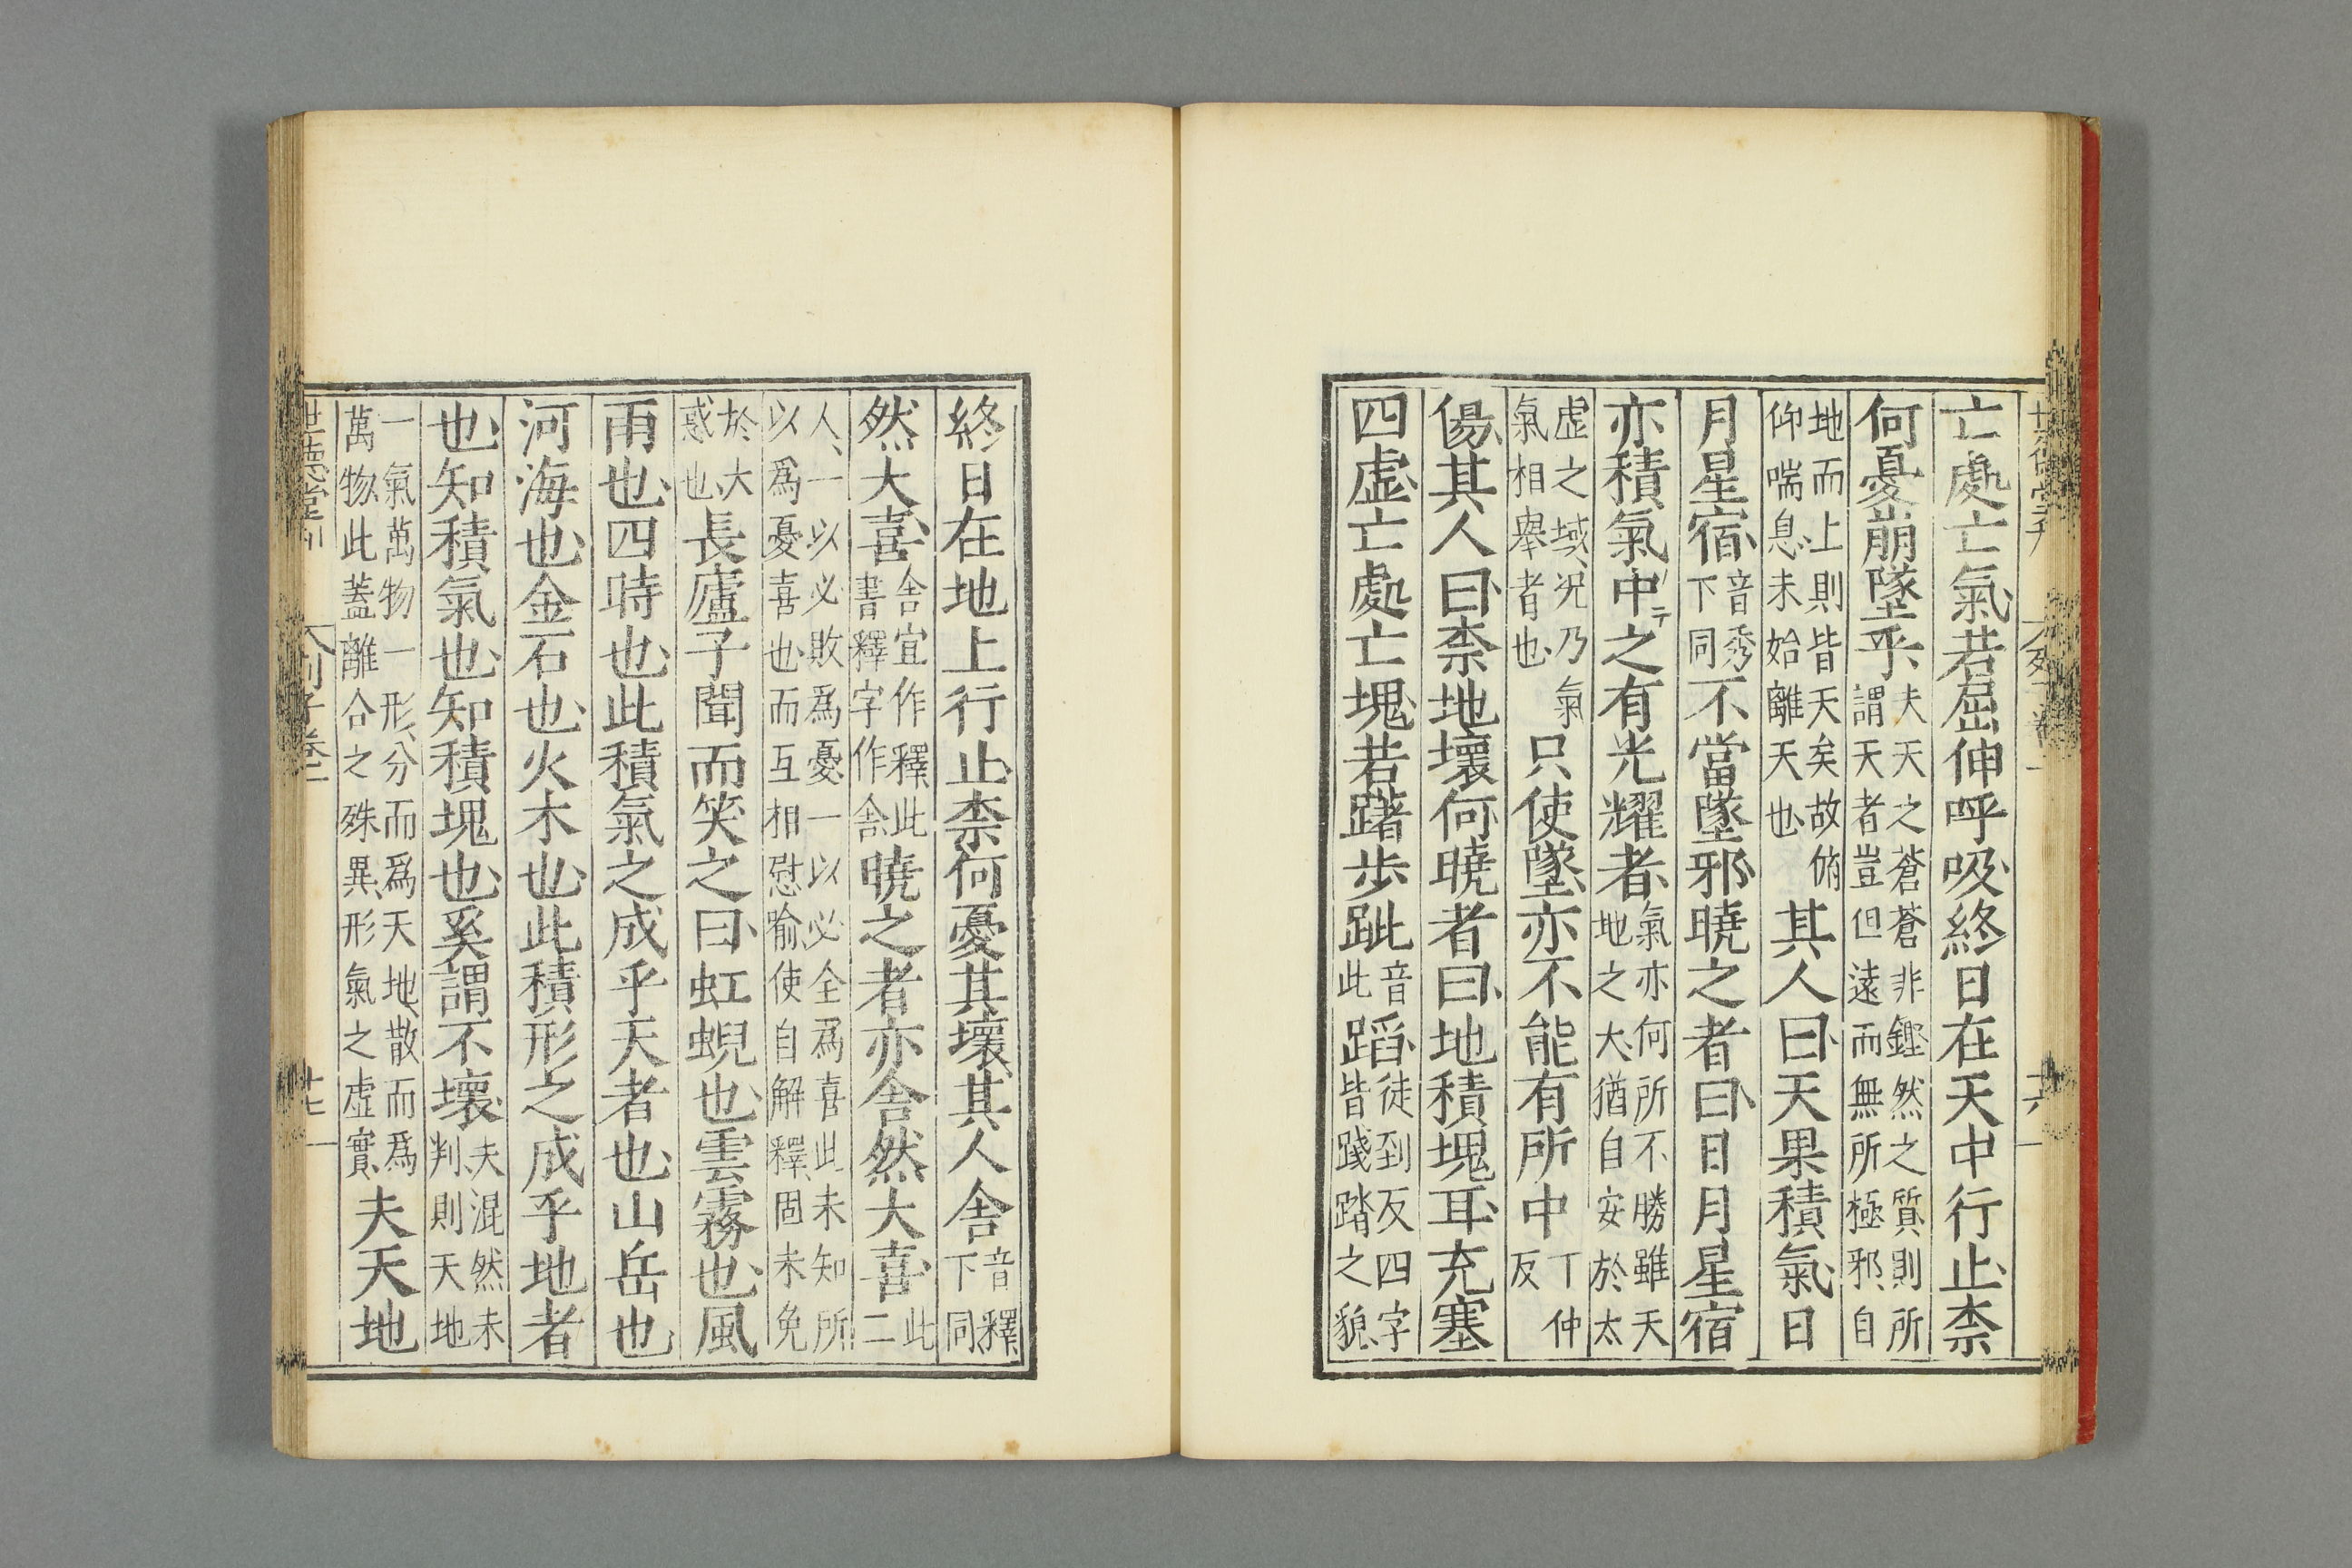 亡處亡氣若屈伸呼吸終日在天中行止柰
何憂崩墜乎夫天之蒼蒼非鏗然之質則所謂天者豈但遠而無所極邪自
地而上則皆天矣故俯仰喘息未始離天也其人曰天果積氣日
月星宿音秀下同不當墜邪曉之者曰日月星宿
亦積氣中之有光耀者氣亦何所不勝雖天地之大猶自安於太
虛之域況乃氣氣相舉者也只使墜亦不能有所中丁仲反
傷其人曰柰地壞何曉者曰地積塊耳充塞
四虛亡處亡塊若躇步跐音此蹈徒到反四字皆踐踏之貌
終日在地上行止柰何憂其壞其人舍音釋下同
然大喜舍宜作釋此書釋字作舍曉之者亦舍然大喜此二
人一以必敗爲憂一以必全爲喜此未知所以爲憂喜也而互相慰喻使自解釋固未免
於大惑也長廬子聞而笑之曰虹蜺也雲霧也風
雨也四時也此積氣之成乎天者也山岳也
河海也金石也火木也此積形之成乎地者
也知積氣也知積塊也奚謂不壞夫混然未判則天地
一氣萬物一形分而爲天地散而爲萬物此蓋離合之殊異形氣之虛實夫天地
世德堂刊 列子卷一 廿七